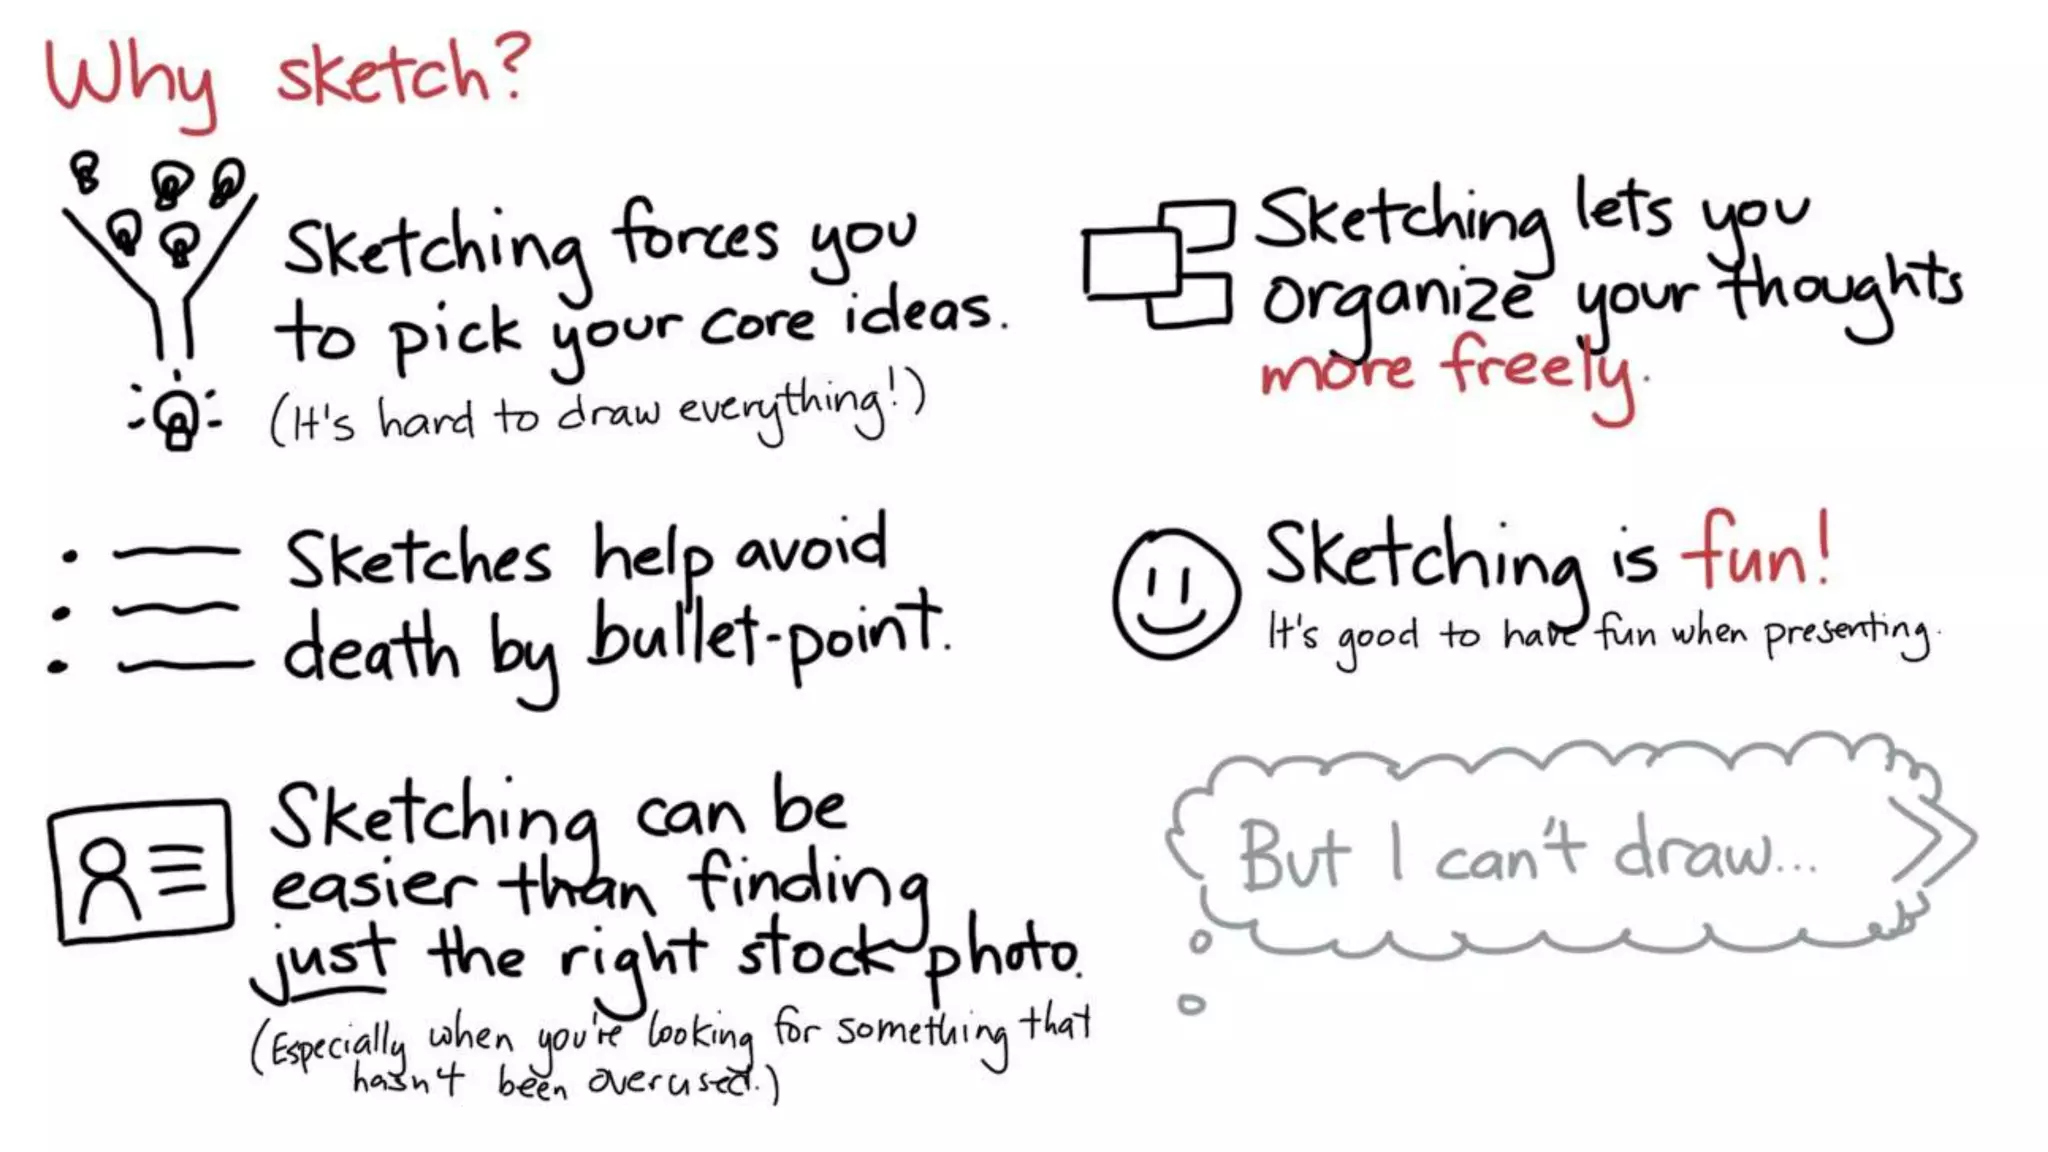 Why sketch?
Sketching forces you
to pick your core ideas.
(It's hard to draw everything!)
Sketches help avoid
death by bullet-point.
Sketching can be
easier than finding
just the right stock photo.
(Especially when you're looking for something that
hasn't been overused.)
Sketching lets you
organize your thoughts
more freely.
Sketching is fun!
It's good to have fun when presenting.
But I can't draw...